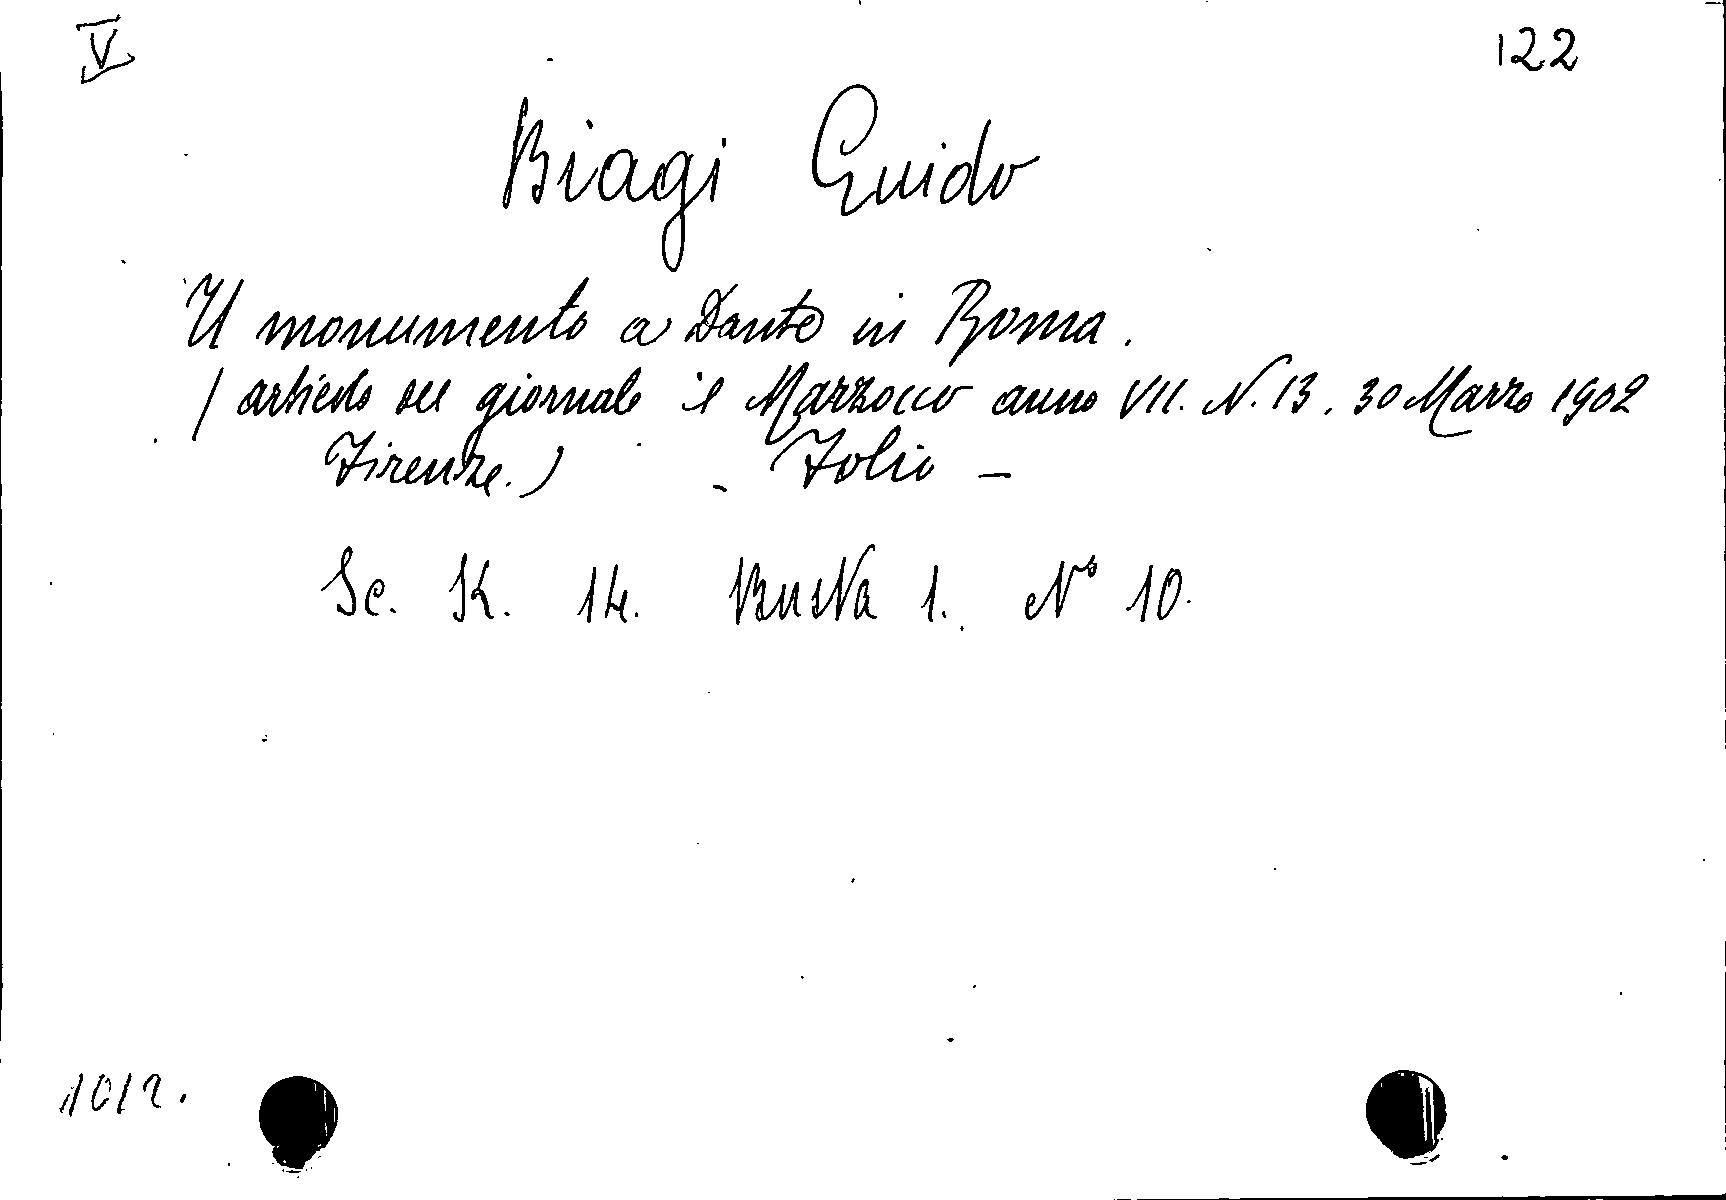 V 122
Biagi Guido
Il monumento a Dante in Roma.
(articolo del giornale il Marzocco anno VII. N. 13. 30 Marzo 1902
Firenze.) - Folio -
Sc. K. 14. Busta 1. N° 10.
1012.